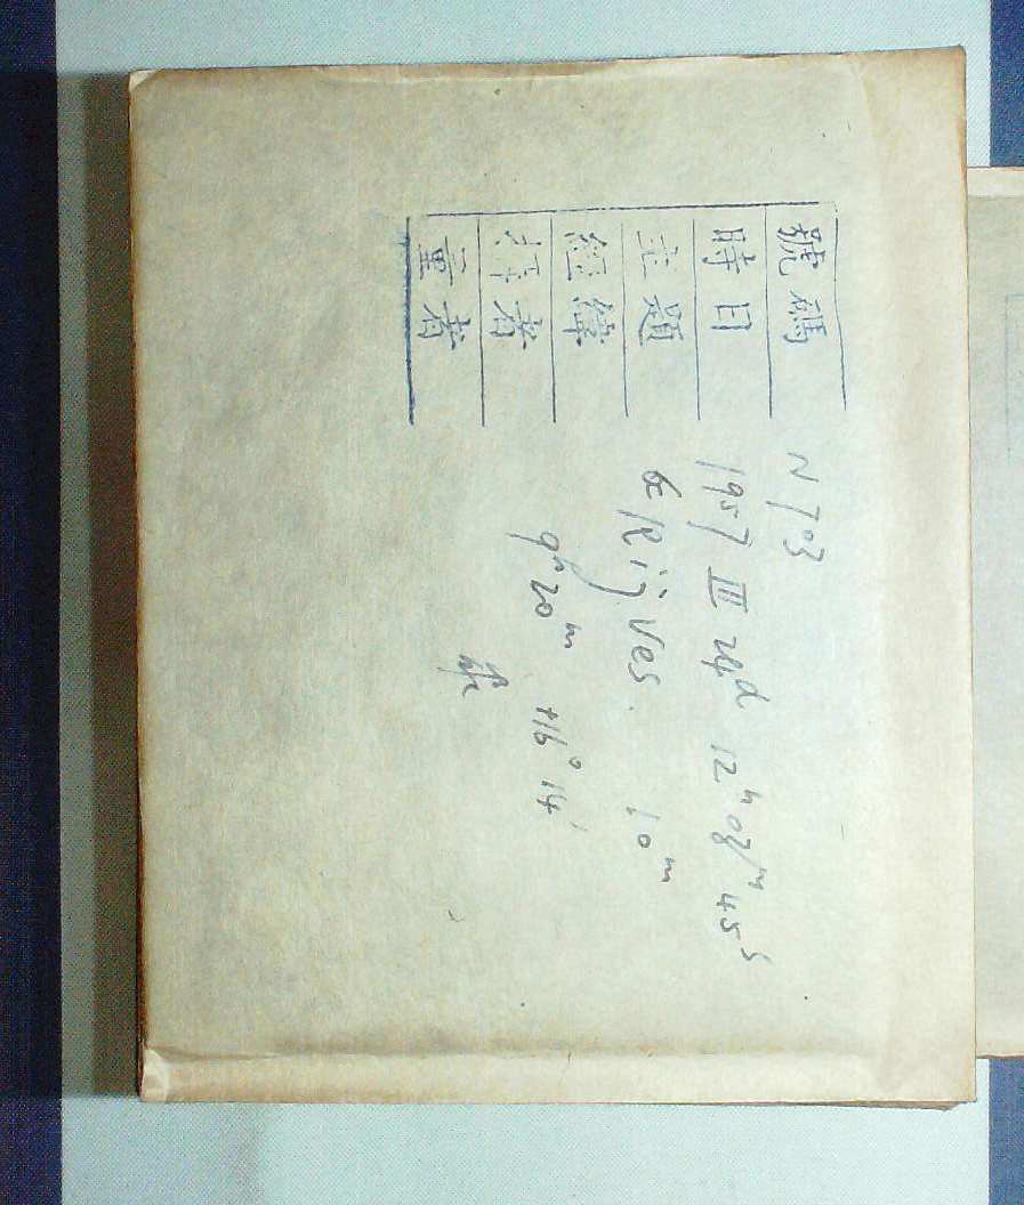 號碼 N703
時日 1957 III 24d 12h 08m 45s
主題 Rijves. 10m
經緯 9h 20m +16° 14'
攝者
量者